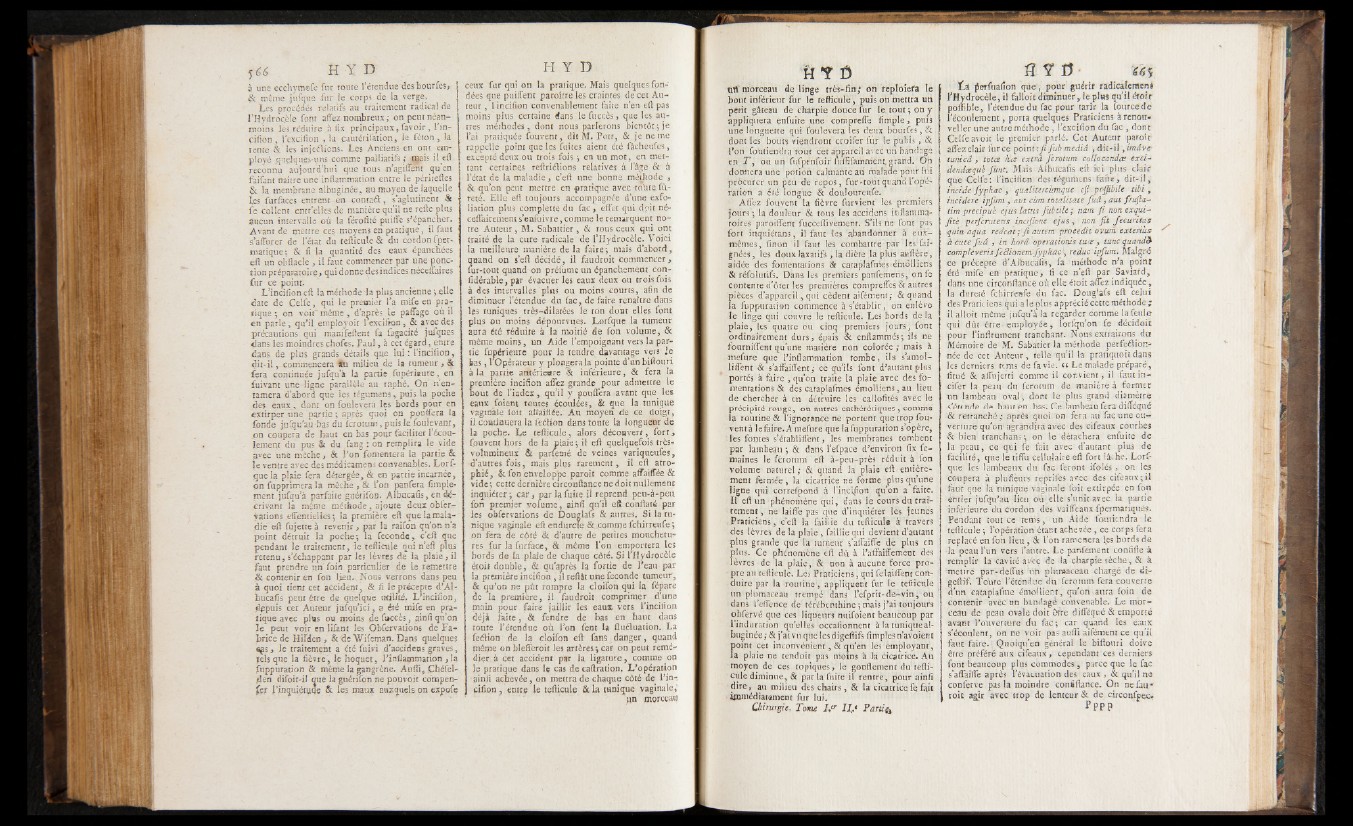 566 H Y D
à une ecchymose sur toute l'étendue des bourses,
& même jusque sur le corps de la verge.
Les procédés relatifs au traitement radical de
l'Hydrocèle sont assez nombreux ; on peut néan-
moins les réduire à six principaux, savoir, l'in-
cision, l'excision, la cautérisation, le séton, la
tente & les injections. Les Anciens en ont em-
ployé quelques-uns comme palliatifs ; mais il est
reconnu aujourd'hui que tous n'agissent qu'en
faisant naître une inflammation entre le péritestes
& la membrane albuginée, au moyen de laquelle
les surfaces entrent en contact, s'agglutinent &
se collent entr'elles de manière qu'il ne reste plus
aucun intervalle où la sérosité puisse s'épancher.
Avant de mettre ces moyens en pratique, il faut
s'assurer de l'état du testicule & du cordon sper-
matique ; & si la quantité des eaux épanchées
est un obstacle, il faut commencer par une ponc-
tion préparatoire, qui donne des indices nécessaires
sur ce point.
L'incision est la méthode la plus ancienne ; elle
date de Celse, qui le premier l'a mise en pra-
tique ; on voit même, d'après le passage où il
en parle, qu'il employoit l'excision, & avec des
précautions qui manifestent sa sagacité jusques
dans les moindres choses. Paul, à cet égard, entre
dans de plus grands détails que lui : l'incision,
dit-il, commencera au milieu de la tumeur, &
sera continuée jusqu'à la partie supérieure, en
suivant une ligne parallèle au raphé. On n'en-
tamera d'abord que les tégumens, puis la poche
des eaux, dont on soulevera les bords pour en
extirper une partie ; après quoi on poussera la
sonde jusqu'au bas du scrotum, puis le soulevant,
on coupera de haut en bas pour faciliter l'écou-
lement du pus & du sang ; on remplira le vide
avec une mèche, & l'on fomentera la partie &
le ventre avec des médicamens convenables. Lors-
que la plaie sera détergée, & en partie incarnée,
on supprimera la mèche, & l'on pansera simple-
ment jusqu'à parfaite guérison. Albucasis, en dé-
crivant la même méthode, ajoute deux obser-
vations essentielles ; la première est que la mala-
die est sujette à revenir, par la raison qu'on n'a
point détruit la poche ; la seconde, c'est que
pendant le traitement, le testicule qui n'est plus
retenu, s'échappant par les lèvres de la plaie, il
faut prendre un soin particulier de le remettre
& contenir en son lieu. Nous verrons dans peu
à quoi tient cet accident, & si le précepte d'Al-
bucasis peut être de quelque utilité. L'incision,
depuis cet Auteur jusqu'ici, a été mise en pra-
tique avec plus ou moins de succès, ainsi qu'on
le peut voir en lisant les Observations de Fa-
brice de Hilden, & de Wiseman. Dans quelques
cas, le traitement a été suivi d'accidens graves,
tels que la fièvre, le hoquet, l'inflammation, la
suppuration & même la gangrène. Aussi, Chésel-
den disoit-il que la guérison ne pouvoit compen-
ser l'inquiétude & les maux auxquels on expose
H Y D
ceux sur qui on la pratique. Mais quelques fon-
dées que puissent paroître les craintes de cet Au-
teur, l'incision convenablement faite n'en est pas
moins plus certaine dans le succès, que les au-
tres méthodes, dont nous parlerons bientôt ; je
l'ai pratiquée souvent, dit M. Pott, & je ne me
rappelle point que les suites aient été fâcheuses,
excepté deux ou trois fois, en un mot, en met-
tant certaines restrictions relatives à l'âge & à
l'état de la maladie, c'est une bonne méthode,
& qu'on peut mettre en pratique avec toute sû-
reté. Elle est toujours accompagnée d'une exfo-
liation plus complette du sac, effet qui doit né-
cessairement s'ensuivre, comme le remarquent no-
tre Auteur, M. Sabattier, & tous ceux qui ont
traité de la cure radicale de l'Hydrocèle. Voici
la meilleure manière de la faire ; mais d'abord,
quand on s'est décidé, il faudroit commencer,
sur-tout quand on présume un épanchement con-
sidérable, par évacuer les eaux deux ou trois fois
à des intervalles plus ou moins courts, afin de
diminuer l'étendue du sac, de faire renaître dans
les tuniques très-dilatées le ton dont elles sont
plus ou moins dépourvues. Lorsque la tumeur
aura été réduite à la moitié de son volume, &
même moins, un Aide l'empoignant vers la par-
tie supérieure pour la tendre davantage vers le
bas, l'Opérateur y plongera la pointe d'un bistouri
à la partie antérieure & inférieure, & fera la
première incision assez grande pour admettre le
bout de l'index, qu'il y poussera avant que les
eaux soient toutes écoulées, & que la tunique
vaginale soit affaissée. Au moyen de ce doigt,
il continuera la section dans toute la longueur de
la poche. Le testicule, alors découvert, sort,
souvent hors de la plaie ; il est quelquefois très-
volumineux & parsemé de veines variqueuses,
d'autres fois, mais plus rarement, il est atro-
phié, & son enveloppe paroît comme affaissée &
vide ; cette dernière circonstance ne doit nullement
inquiéter ; car, par la suite il reprend peu-à-peu
son premier volume, ainsi qu'il est constaté par
les observations de Douglass & autres. Si la tu-
nique vaginale est endurcie & comme schirreuse ;
on fera de côté & d'autre de petites mouchetu-
res sur la surface, & même l'on emportera les
bords de la plaie de chaque côté. Si l'Hydrocèle
étoit double, & qu'après la sortie de l'eau par
la première incision, il restât une seconde tumeur,
& qu'on ne pût rompre la cloison qui la sépare
de la première, il faudroit comprimer d'une
main pour faire jaillir les eaux vers l'incision
déjà faite, & fendre de bas en haut dans
toute l'étendue où l'on sent la fluctuation. La
section de la cloison est sans danger, quand
même on blesseroit les artères ; car on peut remé-
dier à cet accident par la ligature, comme on
le pratique dans le cas de castration. L'opération
ainsi achevée, on mettra de chaque côté de l'in-
cision, entre le testicule & la tunique vaginale,
un morceau
H Y D
un morceau de linge très-fin ; on reploiera le
bout inférieur sur le testicule, puis on mettra un
petit gâteau de charpie douce sur le tout ; on y
appliquera ensuite une compresse simple, puis
une longuette qui soulevera les deux bourses, &
dont les bouts viendront croiser sur le pubis, &
l'on soutiendra tout cet appareil avec un bandage
en T, ou un suspensoir suffisamment grand. On
donnera une potion calmante au malade pour lui
procurer un peu de repos, sur-tout quand l'opé-
ration a été longue & douloureuse.
Assez souvent la fièvre survient les premiers
jours ; la douleur & tous les accidens inflamma-
toires paroissent successivement. S'ils ne sont pas
fort inquiétans, il faut les abandonner à eux-
mêmes, sinon il faut les combattre par les sai-
gnées, les doux laxatifs, la diète la plus austère,
aidée des fomentations & cataplasmes émolliens
& résolutifs. Dans les premiers pansemens, on se
contente d'ôter les premières compresses & autres
pièces d'appareil, qui cèdent aisément ; & quand
la suppuration commence à s'établir, on enlève
le linge qui couvre le testicule. Les bords de la
plaie, les quatre ou cinq premiers jours, sont
ordinairement durs, épais & enflammés ; ils ne
fournissent qu'une matière non colorée ; mais à
mesure que l'inflammation tombe, ils s'amol-
lissent & s'affaissent ; ce qu'ils sont d'autant plus
portés à faire, qu'on traite la plaie avec des fo-
mentations & des cataplasmes émolliens, au lieu
de chercher à en détruire les callosités avec le
précipité rouge, ou autres cathérétiques, comme
la routine & l'ignorance ne portent que trop sou-
vent à le faire. A mesure que la suppuration s'opère,
les fontes s'établissent, les membranes tombent
par lambeau ; & dans l'espace d'environ six se-
maines le scrotum est à-peu-près réduit à son
volume naturel ; & quand la plaie est entière-
ment fermée, la cicatrice ne forme plus qu'une
ligne qui correspond à l'incision qu'on a faite.
Il est un phénomène qui, dans le cours du trai-
tement, ne laisse pas que d'inquiéter les jeunes
Praticiens, c'est la saillie du testicule à travers
des lèvres de la plaie, saillie qui devient d'autant
plus grande que la tumeur s'affaisse de plus en
plus. Ce phénomène est dû à l'affaissement des
lèvres de la plaie, & non à aucune force pro-
pre au testicule. Les Praticiens, qui se laissent con-
duire par la routine, appliquent sur le testicule
un plumaceau trempé dans l'esprit-de-vin, ou
dans l'essence de térébenthine ; mais j'ai toujours
observé que ces liqueurs nuisoient beaucoup par
l'induration qu'elles occasionnent à la tunique al-
buginée ; & j'ai vu que les digestifs simples n'avoient
point cet inconvénient, & qu'en les employant,
la plaie ne tendoit pas moins à la cicatrice. Au
moyen de ces topiques, le gonflement du testi-
cule diminue, & par la suite il rentre, pour ainsi
dire, au milieu des chairs, & la cicatrice se fait
immédiatement sur lui.
Chirurgie. Tome I.er II.e Partie.
H Y D 665
La persuasion que, pour guérir radicalement
l'Hydrocèle, il falloit diminuer, le plus qu'il étoit
possible, l'étendue du sac pour tarir la source de
l'écoulement, porta quelques Praticiens à renou-
veller une autre méthode, l'excision du sac, dont
Celse avoit le premier parlé. Cet Auteur paroît
assez clair sur ce point : si sub mediâ, dit-il, imâve
tunicâ, tota hæc extrà scrotum collocandæ exci-
dendæquè sunt. Mais Albucasis est ici plus clair
que Celse : l'incision des tégumens faite, dit-il,
incide syphac, qualitercùmque est possibile tibi,
incidere ipsum, aut cum totalitate suâ, aut frusta-
tim præcipuè ejus latus subtile ; nam si non exqui-
sitè perscruteris incisione ejus, non fit securitas
quin aqua redeat ; si autem procedit ovum exteriùs
à cute suâ, in horâ operationis tuæ, tunc quandò
compleveris sectionem syphac, reduc ipsum. Malgré
ce précepte d'Albucasis, la méthode n'a point
été mise en pratique, si ce n'est par Saviard,
dans une circonstance où elle étoit assez indiquée,
la dureté schirreuse du sac. Douglass est celui
des Praticiens qui a le plus apprécié cette méthode ;
il alloit même jusqu'à la regarder comme la seule
qui dût être employée, lorsqu'on se décidoit
pour l'instrument tranchant. Nous extrairons du
Mémoire de M. Sabatier la méthode perfection-
née de cet Auteur, telle qu'il la pratiquoit dans
les derniers tems de sa vie. « Le malade préparé,
situé & assujetti comme il convient, il faut in-
ciser la peau du scrotum de manière à former
un lambeau oval, dont le plus grand diamètre
s'étende de haut en bas. Ce lambeau sera disséqué
& retranché ; après quoi on fera au sac une ou-
verture qu'on agrandira avec des ciseaux courbes
& bien tranchans ; on le détachera ensuite de
la peau, ce qui se fait avec d'autant plus de
facilité, que le tissu cellulaire est fort lâche. Lors-
que les lambeaux du sac seront isolés, on les
coupera à plusieurs reprises avec des ciseaux ; il
faut que la tunique vaginale soit extirpée en son
entier jusqu'au lieu où elle s'unit avec la partie
inférieure du cordon des vaisseaux spermatiques.
Pendant tout ce tems, un Aide soutiendra le
testicule ; l'opération étant achevée, ce corps sera
replacé en son lieu, & l'on ramenera les bords de
la peau l'un vers l'autre. Le pansement consiste à
remplir la cavité avec de la charpie sèche, & à
mettre par-dessus un plumaceau chargé de di-
gestif. Toute l'étendue du scrotum sera couverte
d'un cataplasme émollient, qu'on aura soin de
contenir avec un bandage convenable. Le mor-
ceau de peau ovale doit être disséqué & emporté
avant l'ouverture du sac ; car quand les eaux
s'écoulent, on ne voit pas aussi aisément ce qu'il
faut faire. Quoiqu'en général le bistouri doive
être préféré aux ciseaux, cependant ces derniers
sont beaucoup plus commodes, parce que le sac
s'affaisse après l'évacuation des eaux, & qu'il ne
conserve pas la moindre consistance. On ne sau-
roit agir avec trop de lenteur & de circonspec-
P p p p